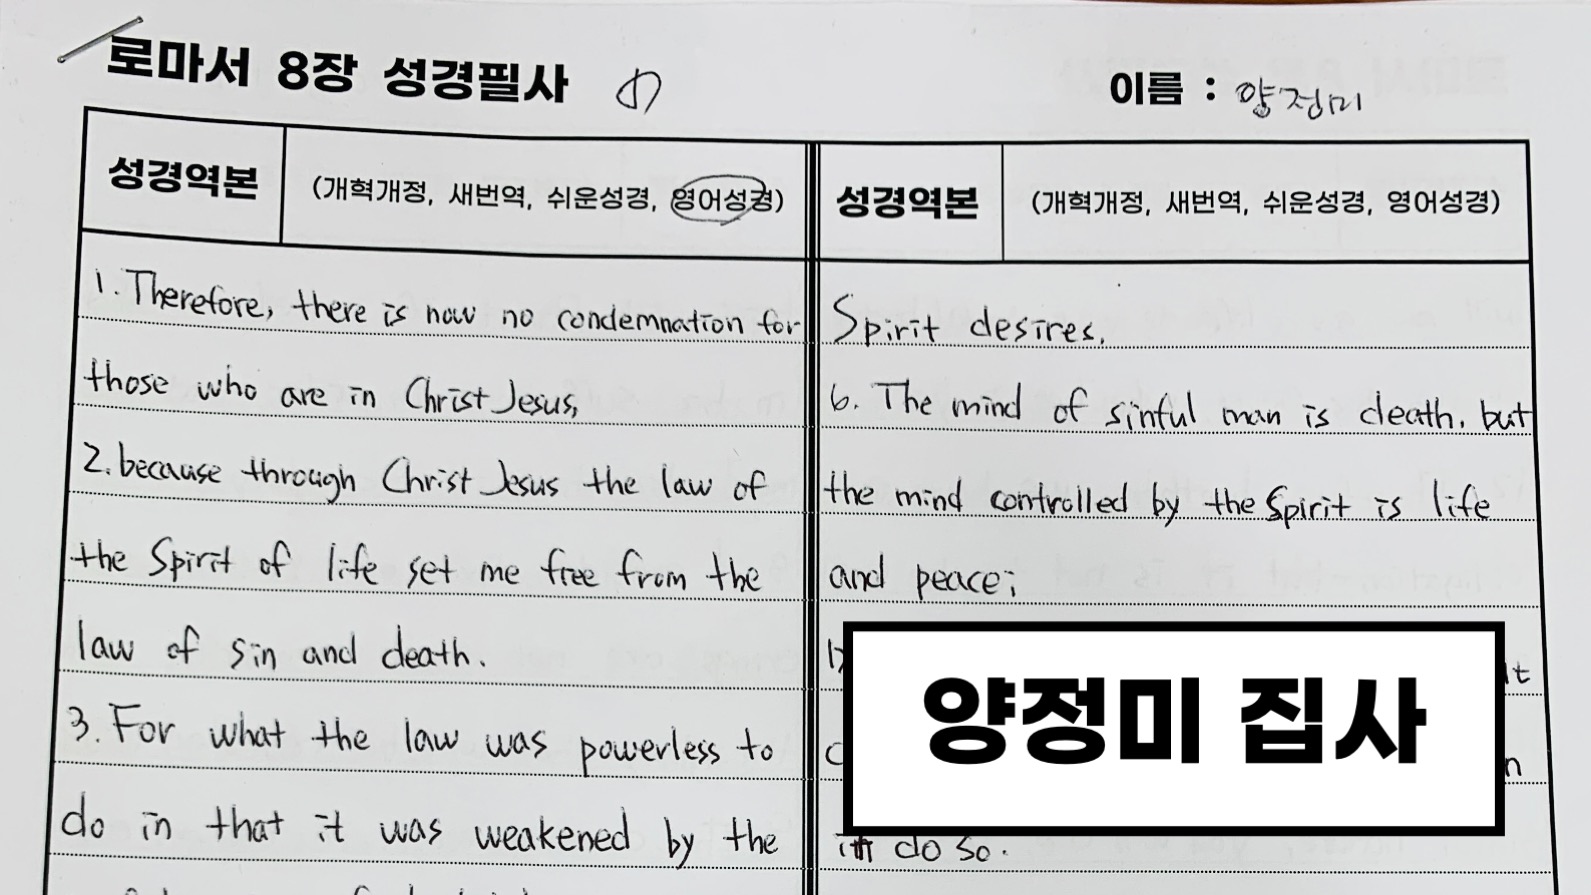 로마서 8장 성경필사
이름 : 양정미
성경역본 (개혁개정, 새번역, 쉬운성경, 영어성경)
1. Therefore, there is now no condemnation for
those who are in Christ Jesus,
2. because through Christ Jesus the law of
the Spirit of life set me free from the
law of sin and death.
3. For what the law was powerless to
do in that it was weakened by the
성경역본 (개혁개정, 새번역, 쉬운성경, 영어성경)
Spirit desires.
6. The mind of sinful man is death, but
the mind controlled by the Spirit is life
and peace;
do so.
양정미 집사